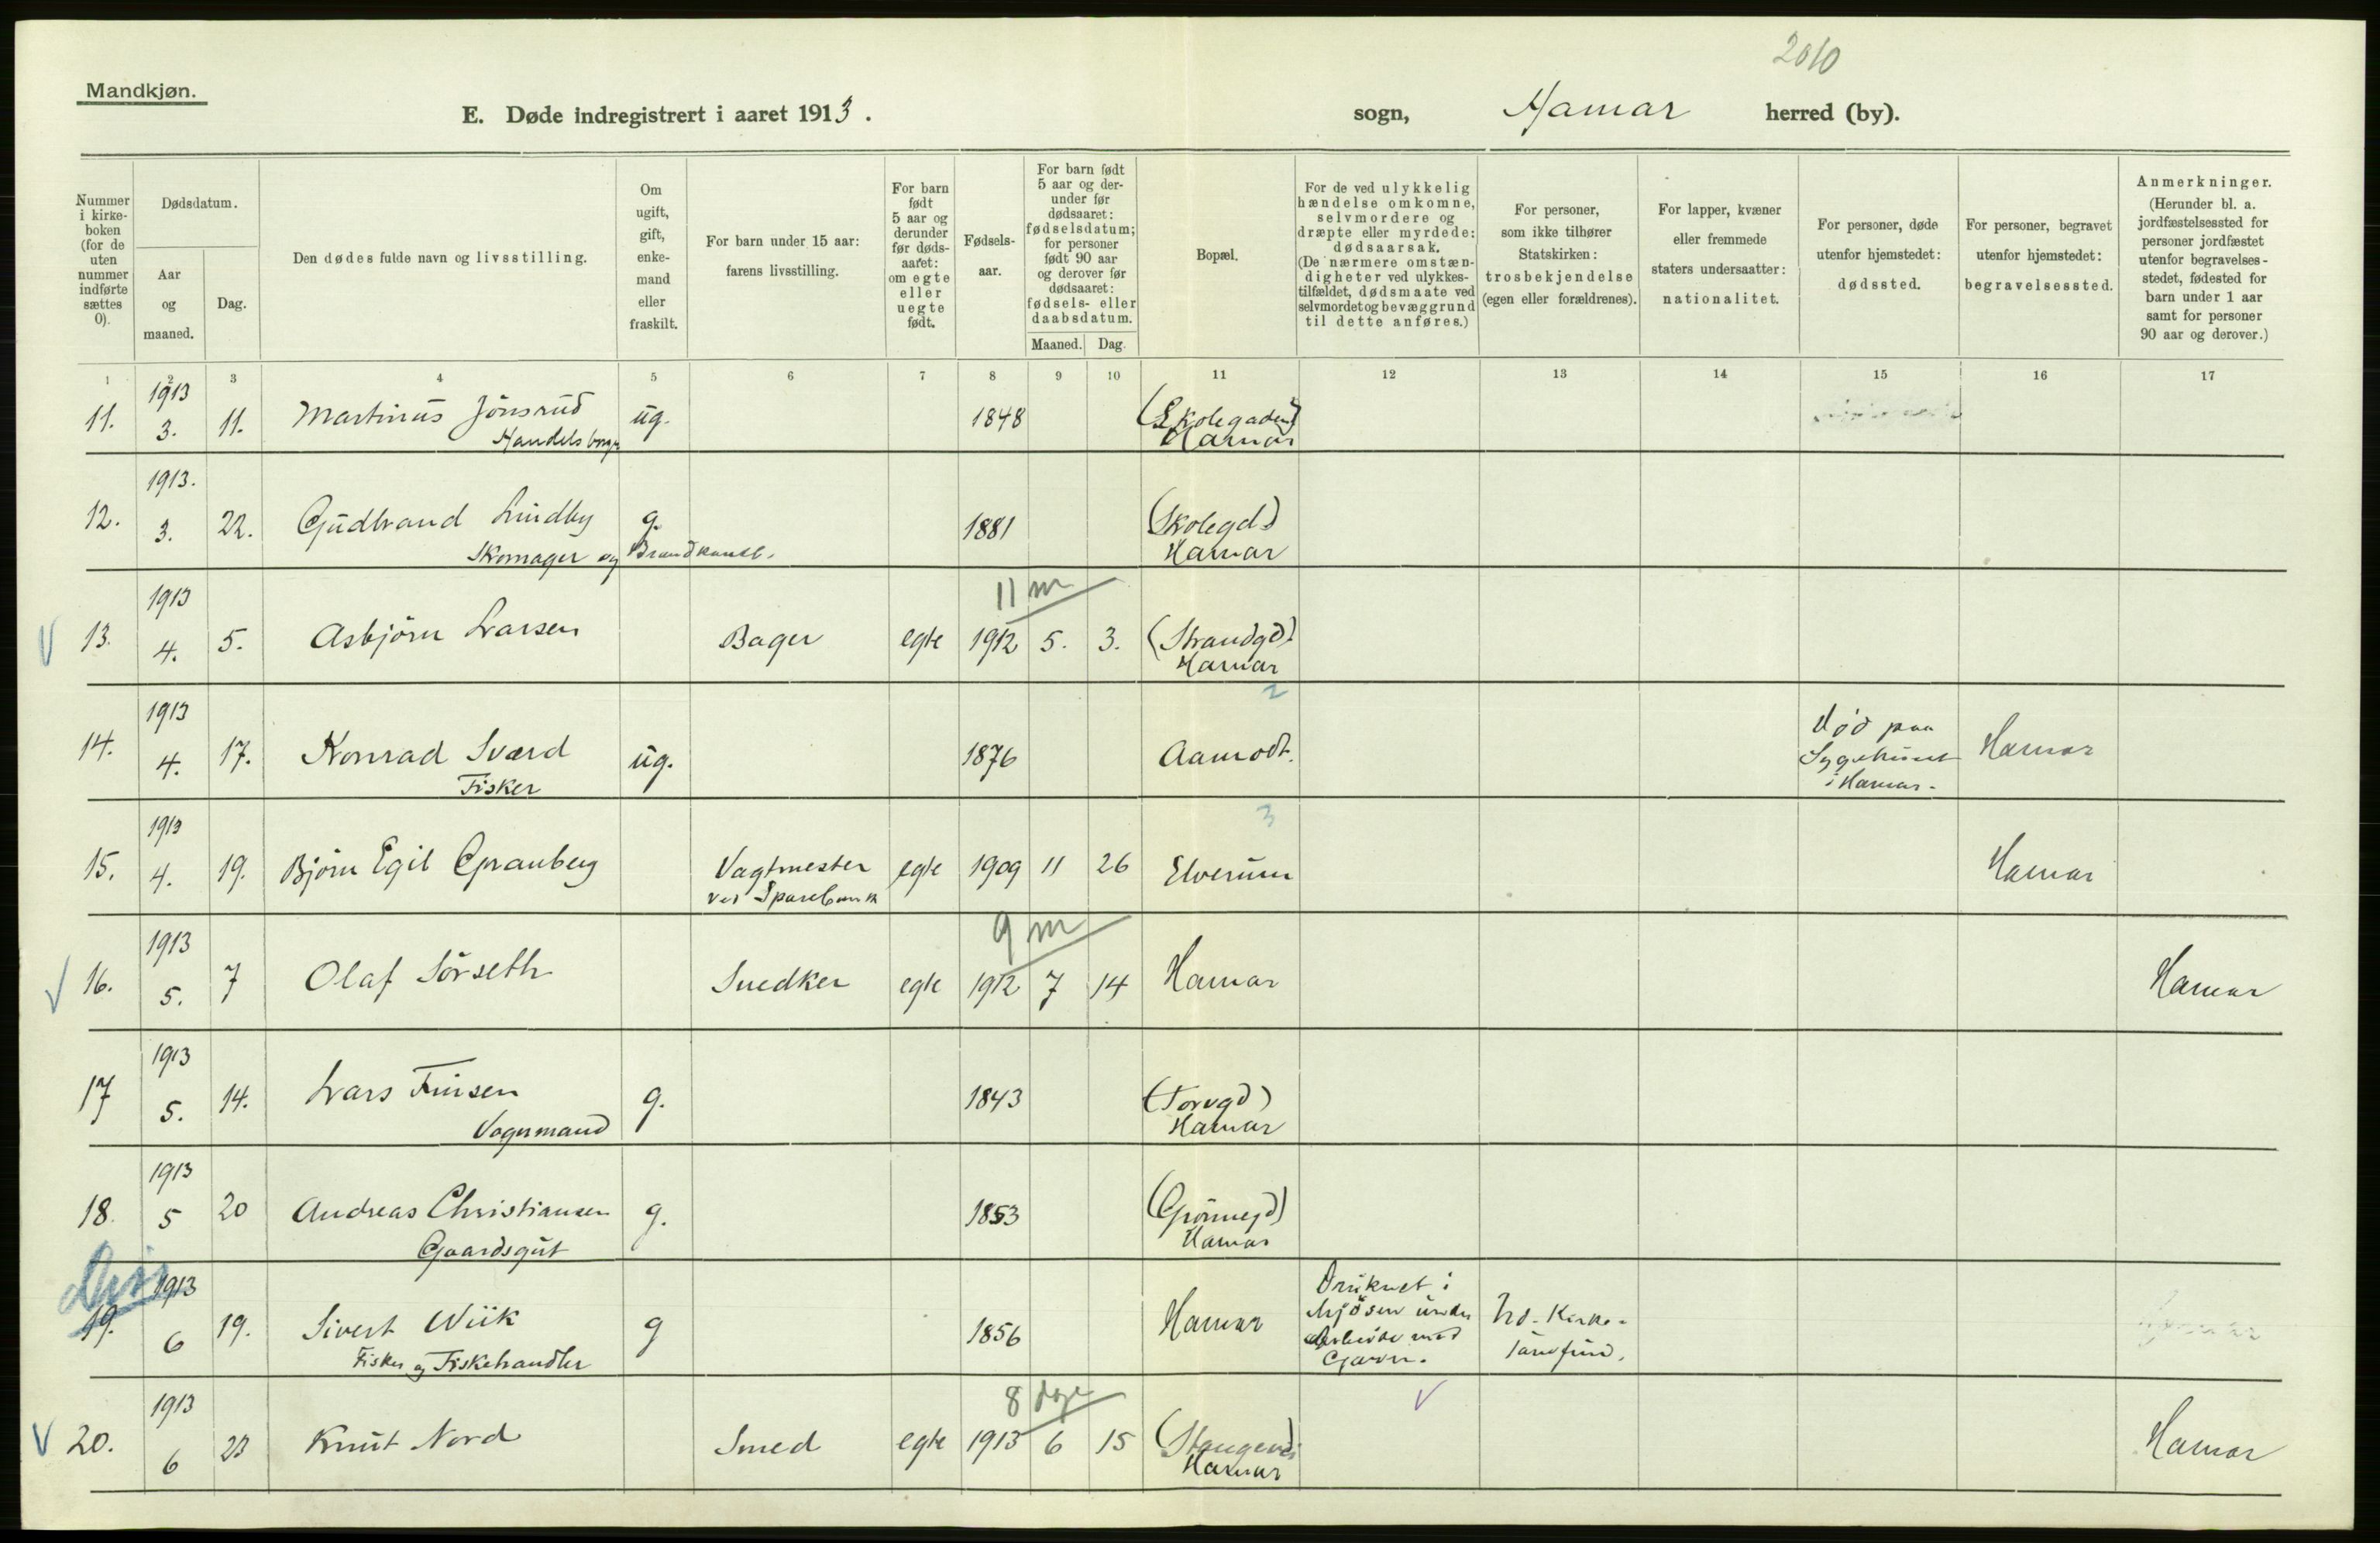 2010
Mandkjøn.
E. Døde indregistrert i aaret 1913. sogn, Hamar herred (by).
Nummer i kirkeboken (for de uten nummer indførte sættes 0).
Dødsdatum.
Aar og maaned.
Dag.
Den dødes fulde navn og livsstilling.
Om ugift, gift, enkemand eller fraskilt.
For barn under 15 aar: farens livsstilling.
For barn født 5 aar og derunder før dødsaaret: om egte eller uegte født.
Fødselsaar.
For barn født 5 aar og derunder før dødsaaret: fødselsdatum; for personer født 90 aar og derover før dødsaaret: fødsels- eller daabsdatum.
Maaned. Dag.
Bopæl.
For de ved ulykkelig hændelse omkomne, selvmordere og dræpte eller myrdede: dødsaarsak. (De nærmere omstændigheter ved ulykkestilfældet, dødsmaate ved selvmordet og bevæggrund til dette anføres.)
For personer, som ikke tilhører Statskirken: trosbekjendelse (egen eller forældrenes).
For lapper, kvæner eller fremmede staters undersaatter: nationalitet.
For personer, døde utenfor hjemstedet: dødssted.
For personer, begravet utenfor hjemstedet: begravelsessted.
Anmerkninger. (Herunder bl. a. jordfæstelsessted for personer jordfæstet utenfor begravelsesstedet, fødested for barn under 1 aar samt for personer 90 aar og derover.)
1 2 3 4 5 6 7 8 9 10 11 12 13 14 15 16 17
1913
11. 3. 11. Martinus Jönsrud ug. 1848 (Skolegaden)
Handelsborger Hamar
1913.
12. 3. 22. Gudbrand Lundby g. 1881 (Skolegd.)
Skomager og Brandkonst. Hamar
1913 11 m
13. 4. 5. Asbjörn Larsen Bager egte 1912 5. 3. (Strandgd.)
Hamar
2
1913 Död paa
14. 4. 17. Konrad Sværd ug. 1876 Aamodt. Sygehuset Hamar
Fisker i Hamar.
3
1913
15. 4. 19. Björn Egil Granberg Vagtmester egte 1909 11 26 Elverum Hamar
ved Sparebank
1913 9 m
16. 5. 7 Olaf Sörseth Snedker egte 1912 7 14 Hamar Hamar
1913
17 5. 14. Lars Finsen g. 1843 (Torvgd)
Vognmand Hamar
1913
18. 5 20 Andreas Christiansen g. 1853 (Grönnegd)
Gaardsgut Hamar
1913 Druknet i
19. 6 19. Sivert Wiik g 1856 Hamar Mjösen under
Fisker og Fiskehandler Arbeide med
Garn.
1913 8 dage
20. 6 23 Knut Nord Smed egte 1913 6 15 (Stangevei Hamar
Hamar